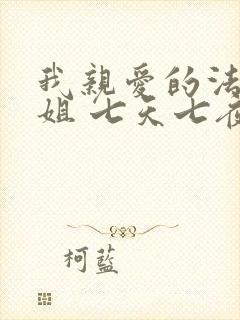 我親愛的法
姐 七天七夜
柯藍